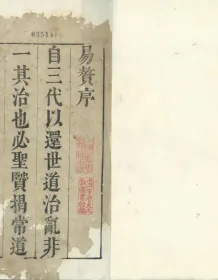 03514
易贅序
自三代以還世道治亂非
一其治也必聖賢揭常道